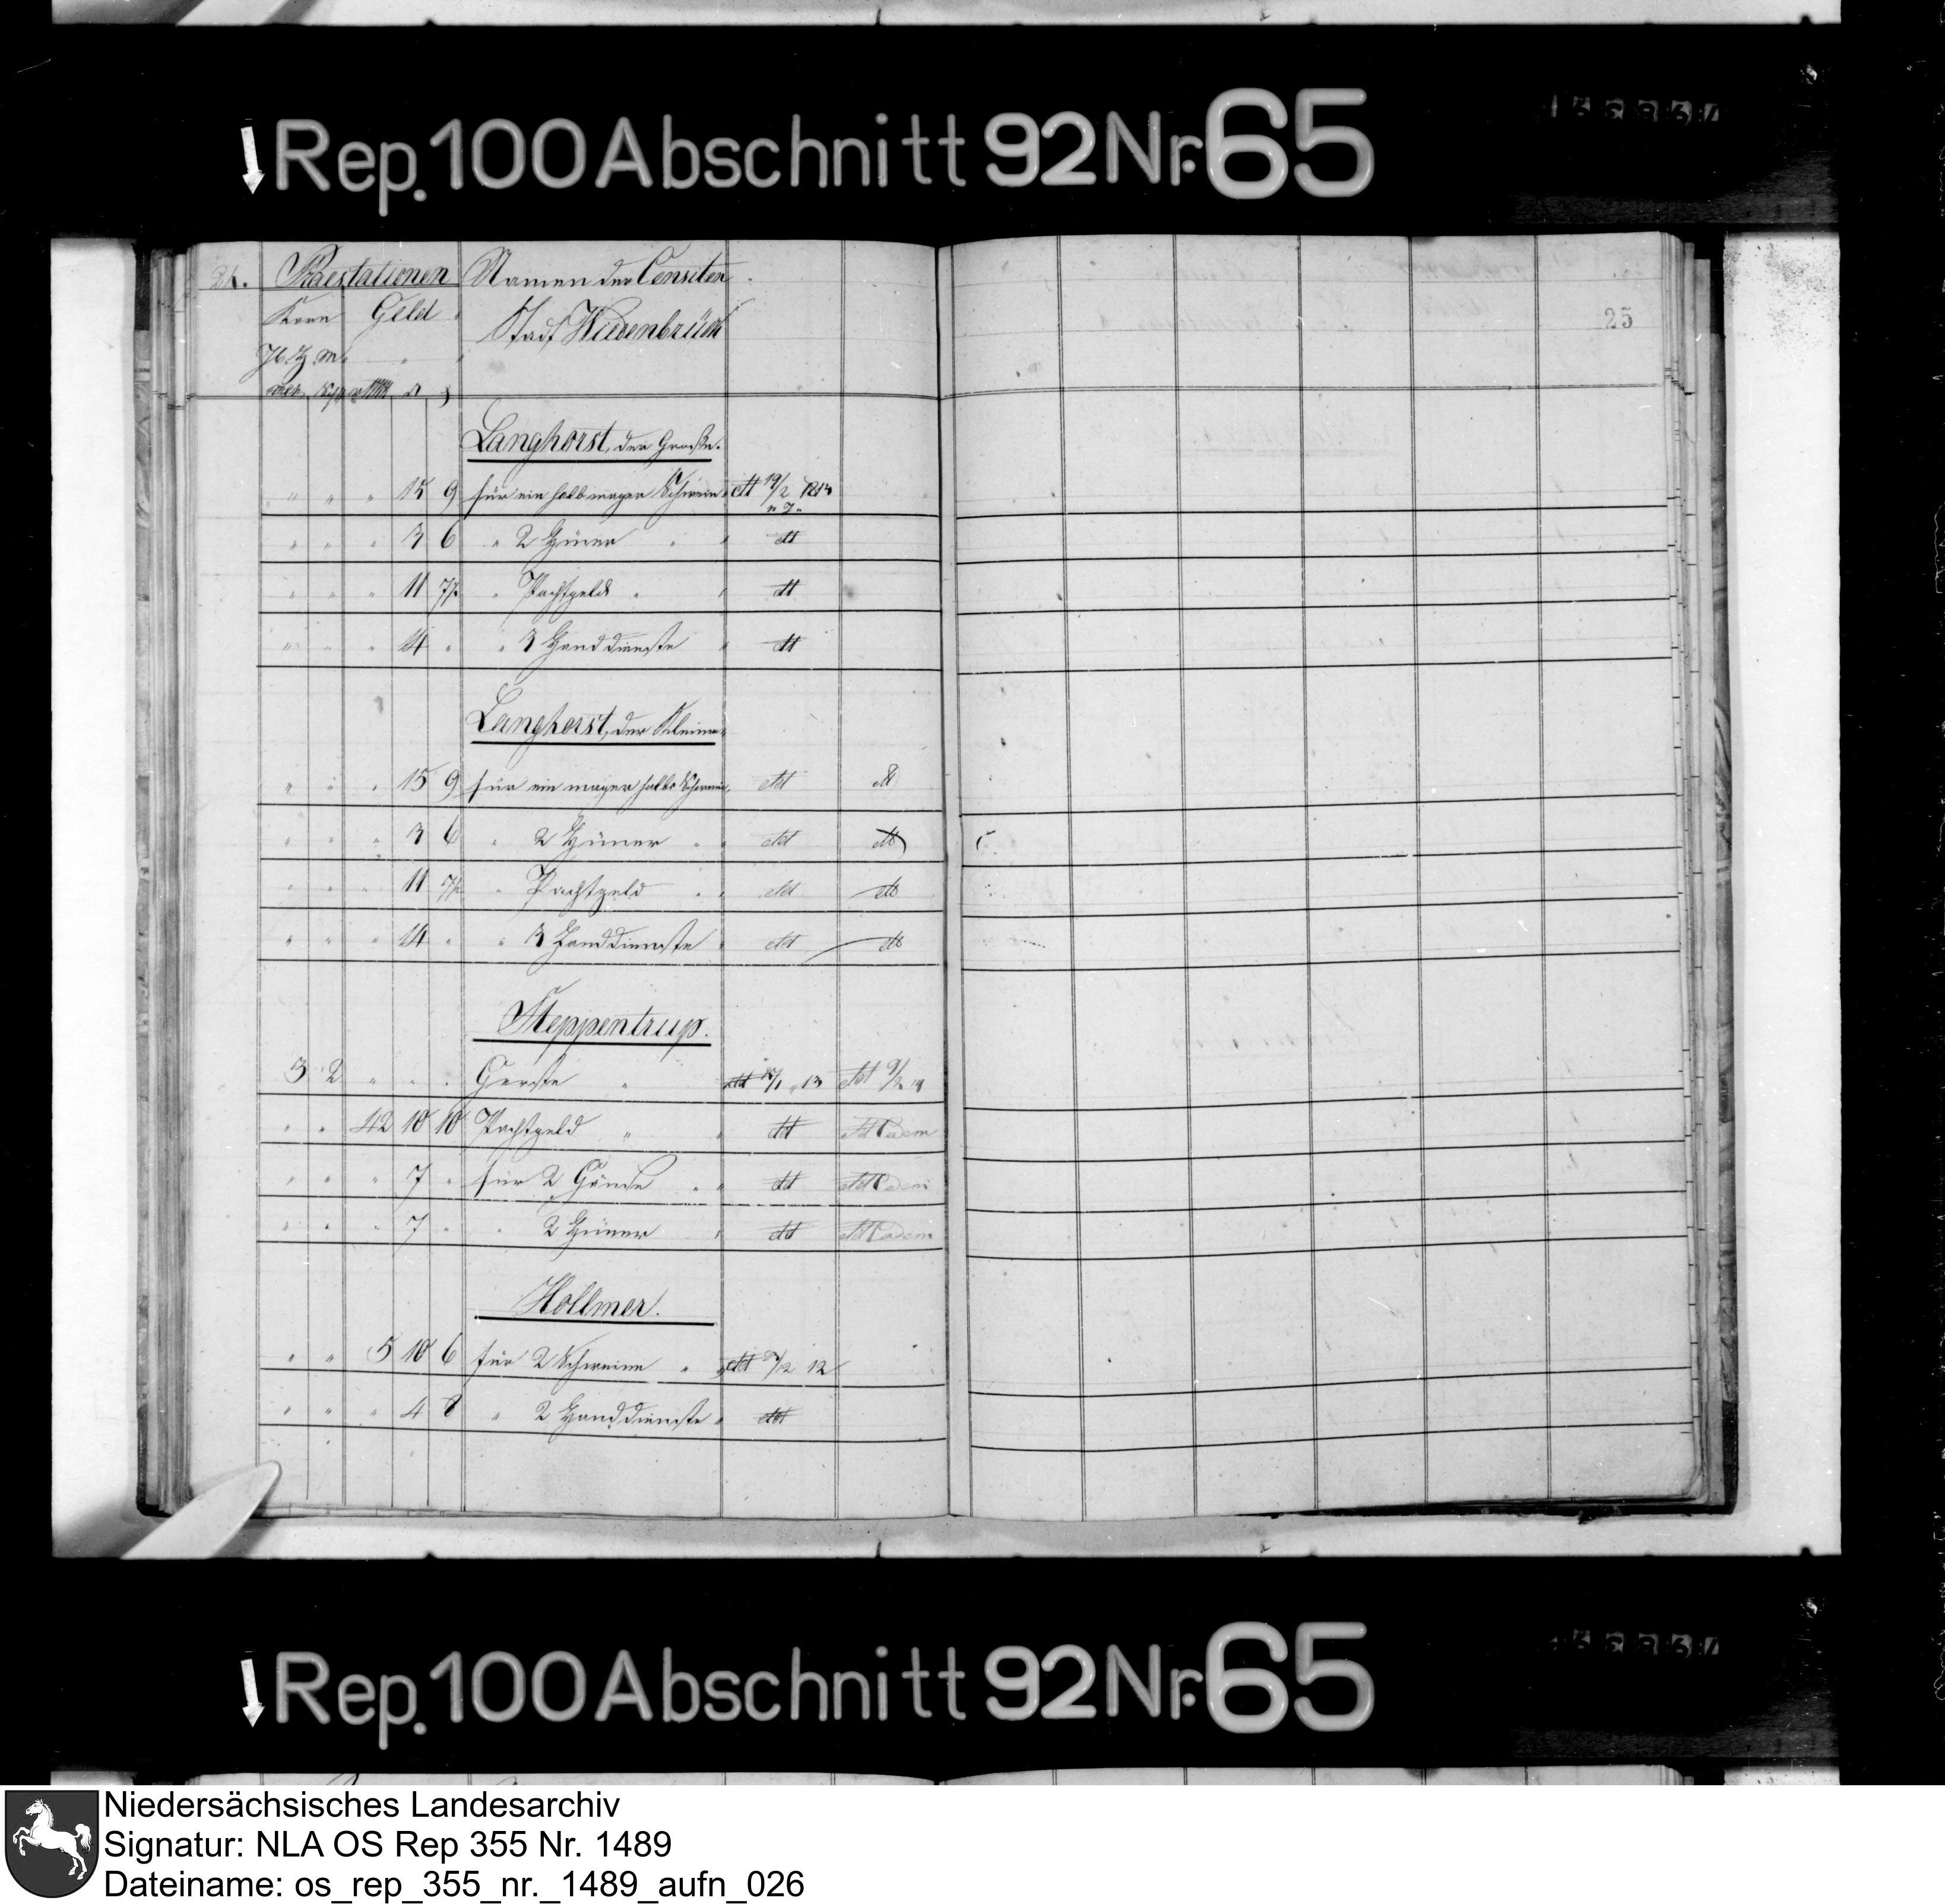 Rep. 100 Abschnitt 92 Nr. 65
24. Praestationen Namen der Censiten
Korn Geld Stadt Wiedenbrück
25
Langhorst, der Große.
" " " 15 9 für ein halb mager Schwein dt 19/2 1813
" " " 3 6 " 2 Hüner " " dt
" " " 11 7½ " Pachtgeld " " dt
" " " 14 " " 3 Handdienste " dt
Langhorst, der Kleine
" " " 15 9 für ein mager halbs Schwein dt dt
" " " 3 6 " 2 Hüner " " dt dt
" " " 11 7½ " Pachtgeld " " dt dt
" " " 14 " " 3 Handdienste " dt dt
Steppentrup.
3 2 " " " Gerste " dt 13 dt 9/2 14
" " 42 10 10 Pachtgeld " " dt dt Eadem
" " " 7 " für 2 Gänse " " dt dt Eadem
" " " 7 " " 2 Hüner " dt dt Eadem
Hollmer.
" " 5 10 6 für 2 Schweine " dt 12
" " " 4 8 " 2 Handdienste " dt
Rep. 100 Abschnitt 92 Nr. 65
Niedersächsisches Landesarchiv
Signatur: NLA OS Rep 355 Nr. 1489
Dateiname: os_rep_355_nr._1489_aufn_026